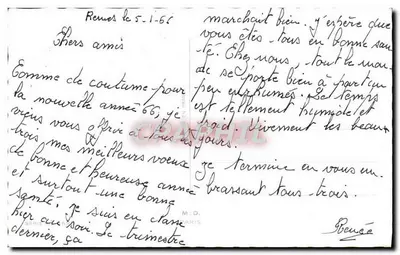 Rennes le 5-1-66
Chers amis
Comme de coutume pour
la nouvelle année 66, je
viens vous offrir à tous les
trois mes meilleurs voeux
de bonne et heureuse année
et surtout une bonne
santé. Je suis en classe
hier au soir. Le trimestre
dernier, ça
marchait bien. J'espère que
vous êtes tous en bonne san-
té. Chez nous, tout le mon-
de se porte bien à part qu'un
peu enrhumés. Le temps
est tellement humide et
froid. Vivement les beaux
jours.
Je termine en vous em-
brassant tous trois.
Renée
M.D.